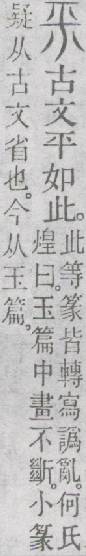 古文平如此。此等篆皆轉寫譌亂。何氏
煌曰。玉篇中畫不斷。小篆
疑从古文省也。今从玉篇。